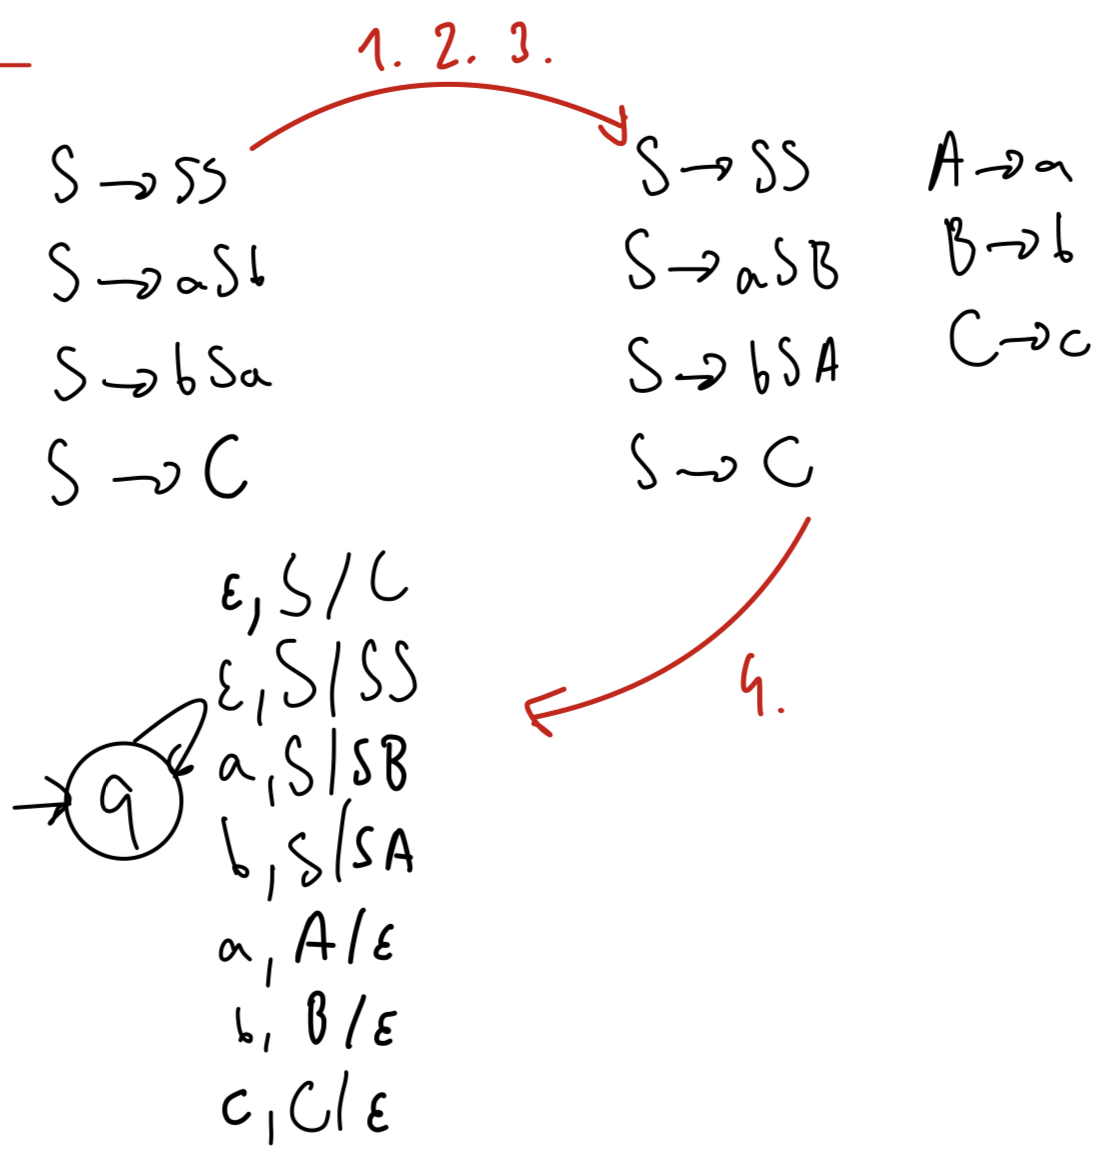 1. 2. 3.
S → SS
S → aSb
S → bSa
S → C
S → SS
S → aSB
S → bSA
S → C
A → a
B → b
C → c
4.
ε, S / C
ε, S / SS
a, S / SB
b, S / SA
a, A / ε
b, B / ε
c, C / ε
q